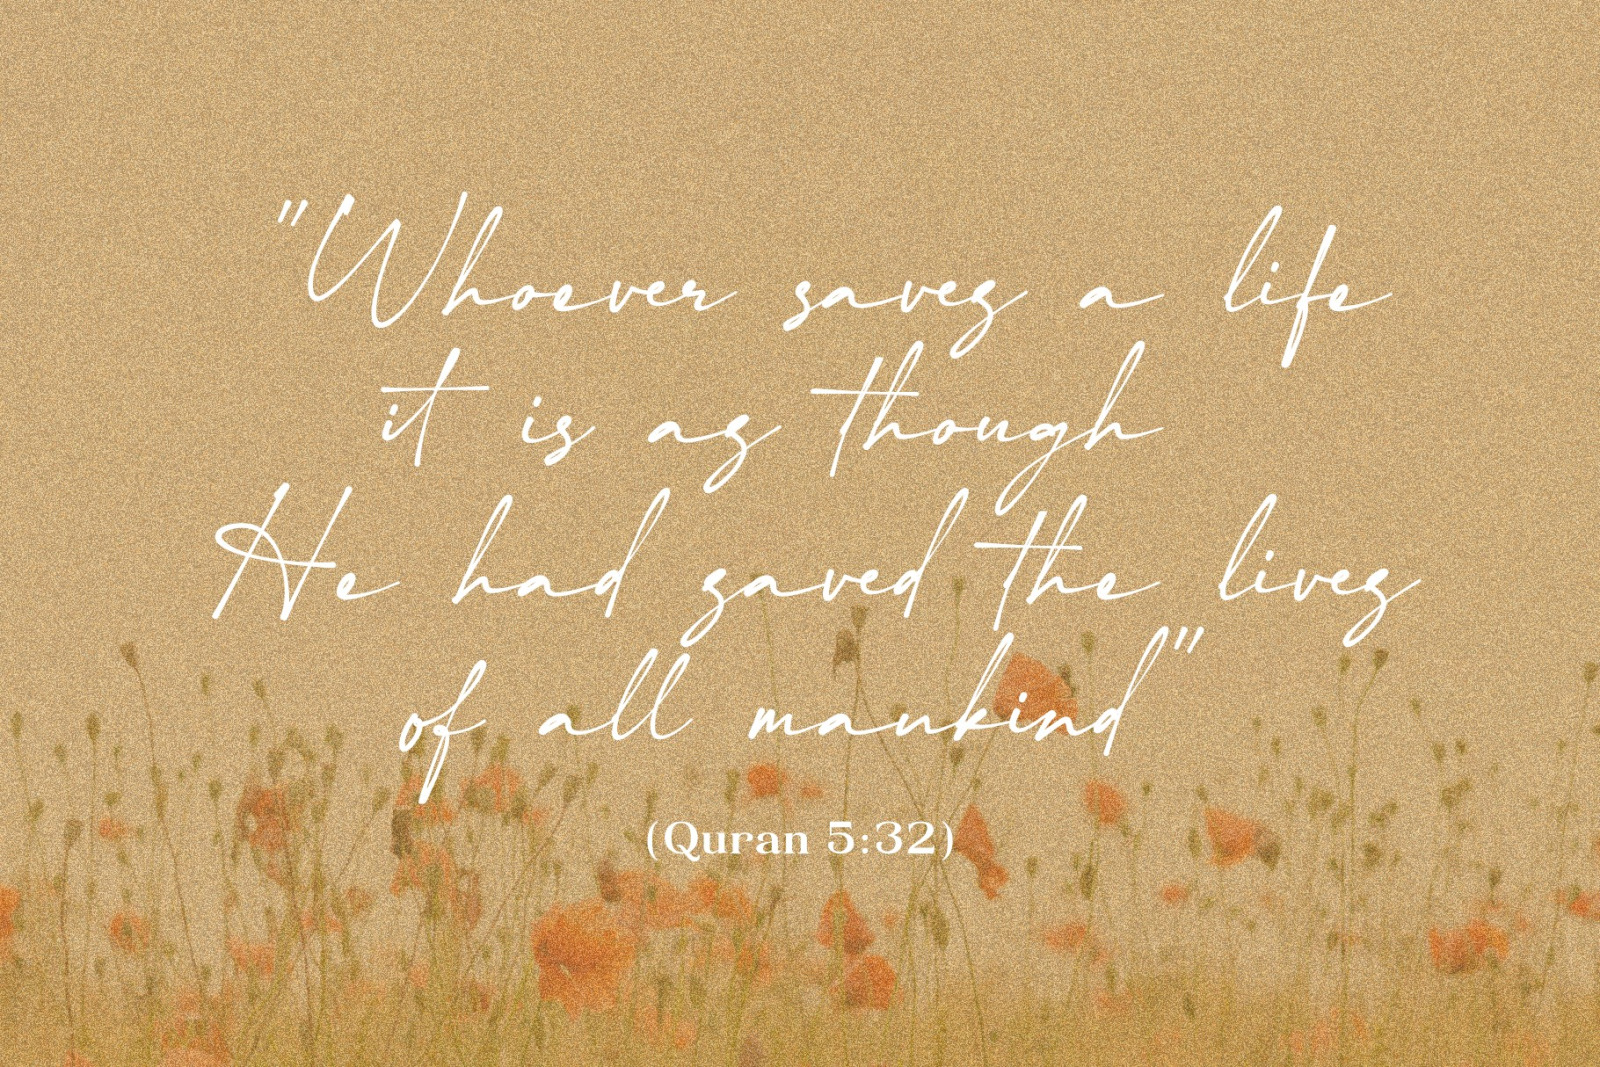 "Whoever saves a life
it is as though
He had saved the lives
of all mankind"
(Quran 5:32)